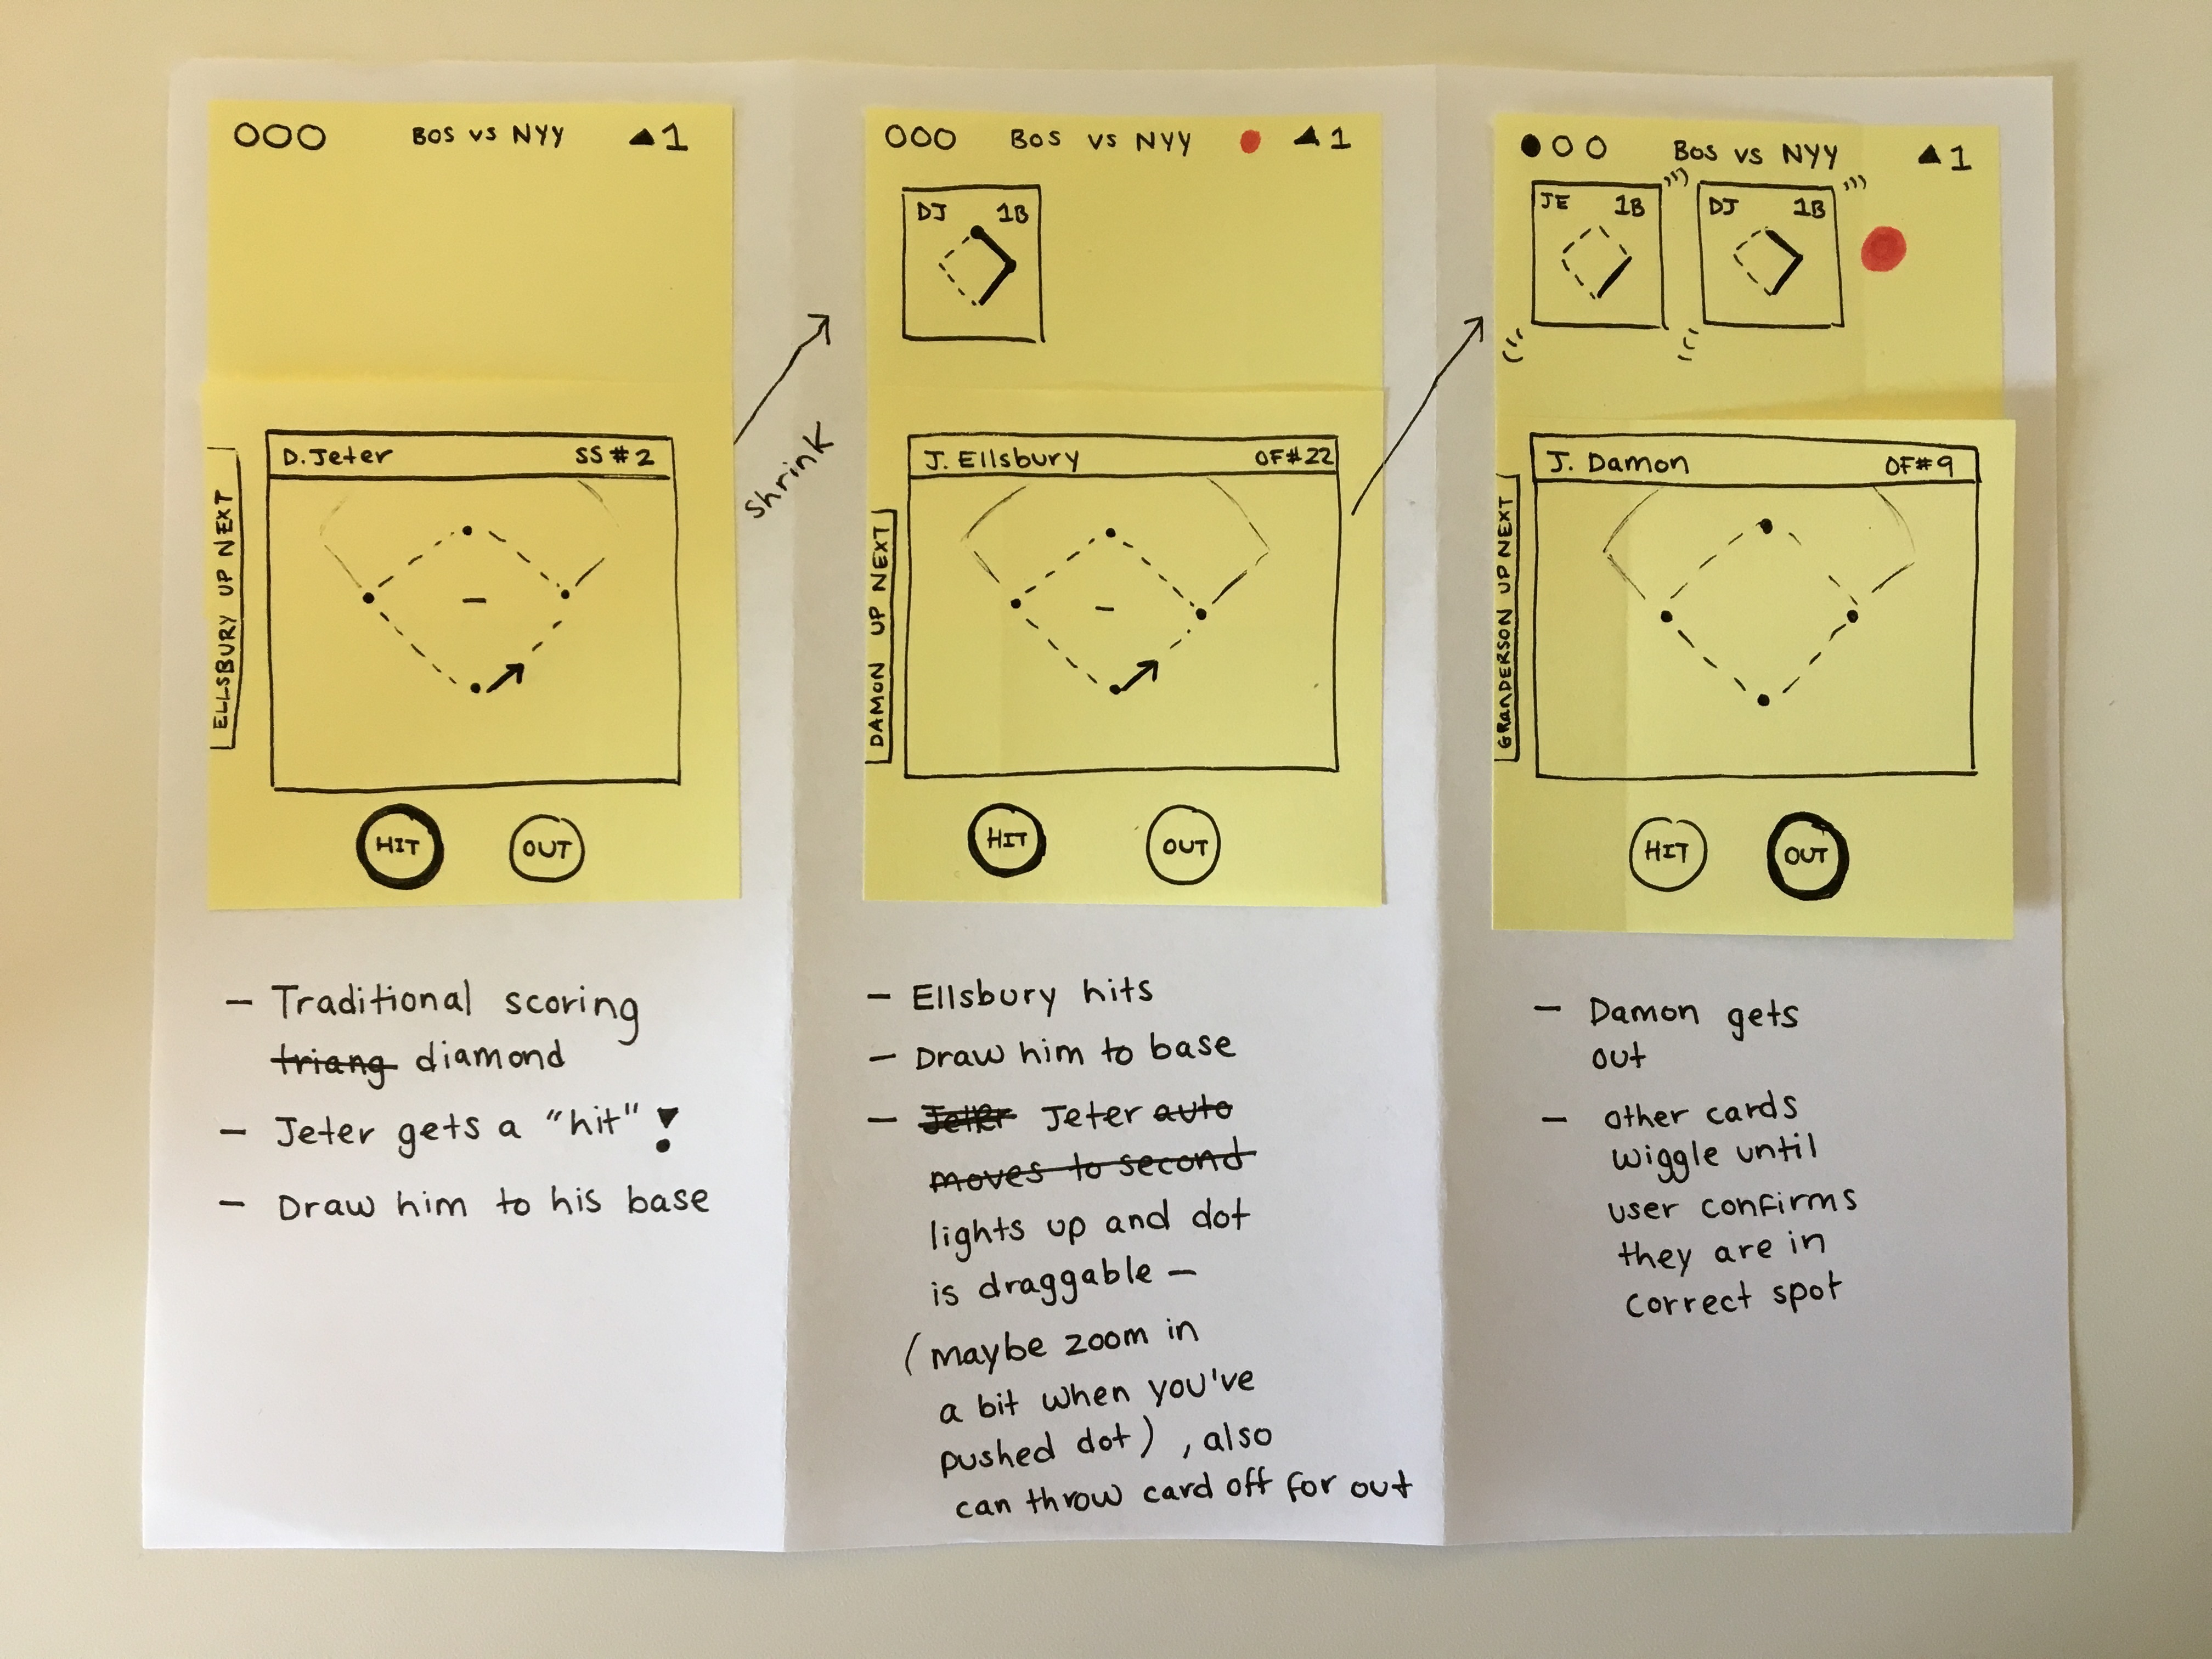 BOS vs NYY ▲1
ELLSBURY UP NEXT
D. Jeter SS #2
HIT OUT
Shrink
- Traditional scoring
triang diamond
- Jeter gets a "hit"!
- Draw him to his base
BOS vs NYY ▲1
DJ 1B
DAMON UP NEXT
J. Ellsbury OF#22
HIT OUT
- Ellsbury hits
- Draw him to base
- Jeter Jeter auto
moves to second
lights up and dot
is draggable -
(maybe zoom in
a bit when you've
pushed dot), also
can throw card off for out
BOS vs NYY ▲1
JE 1B
DJ 1B
GRANDERSON UP NEXT
J. Damon OF#9
HIT OUT
- Damon gets
out
- other cards
wiggle until
user confirms
they are in
correct spot